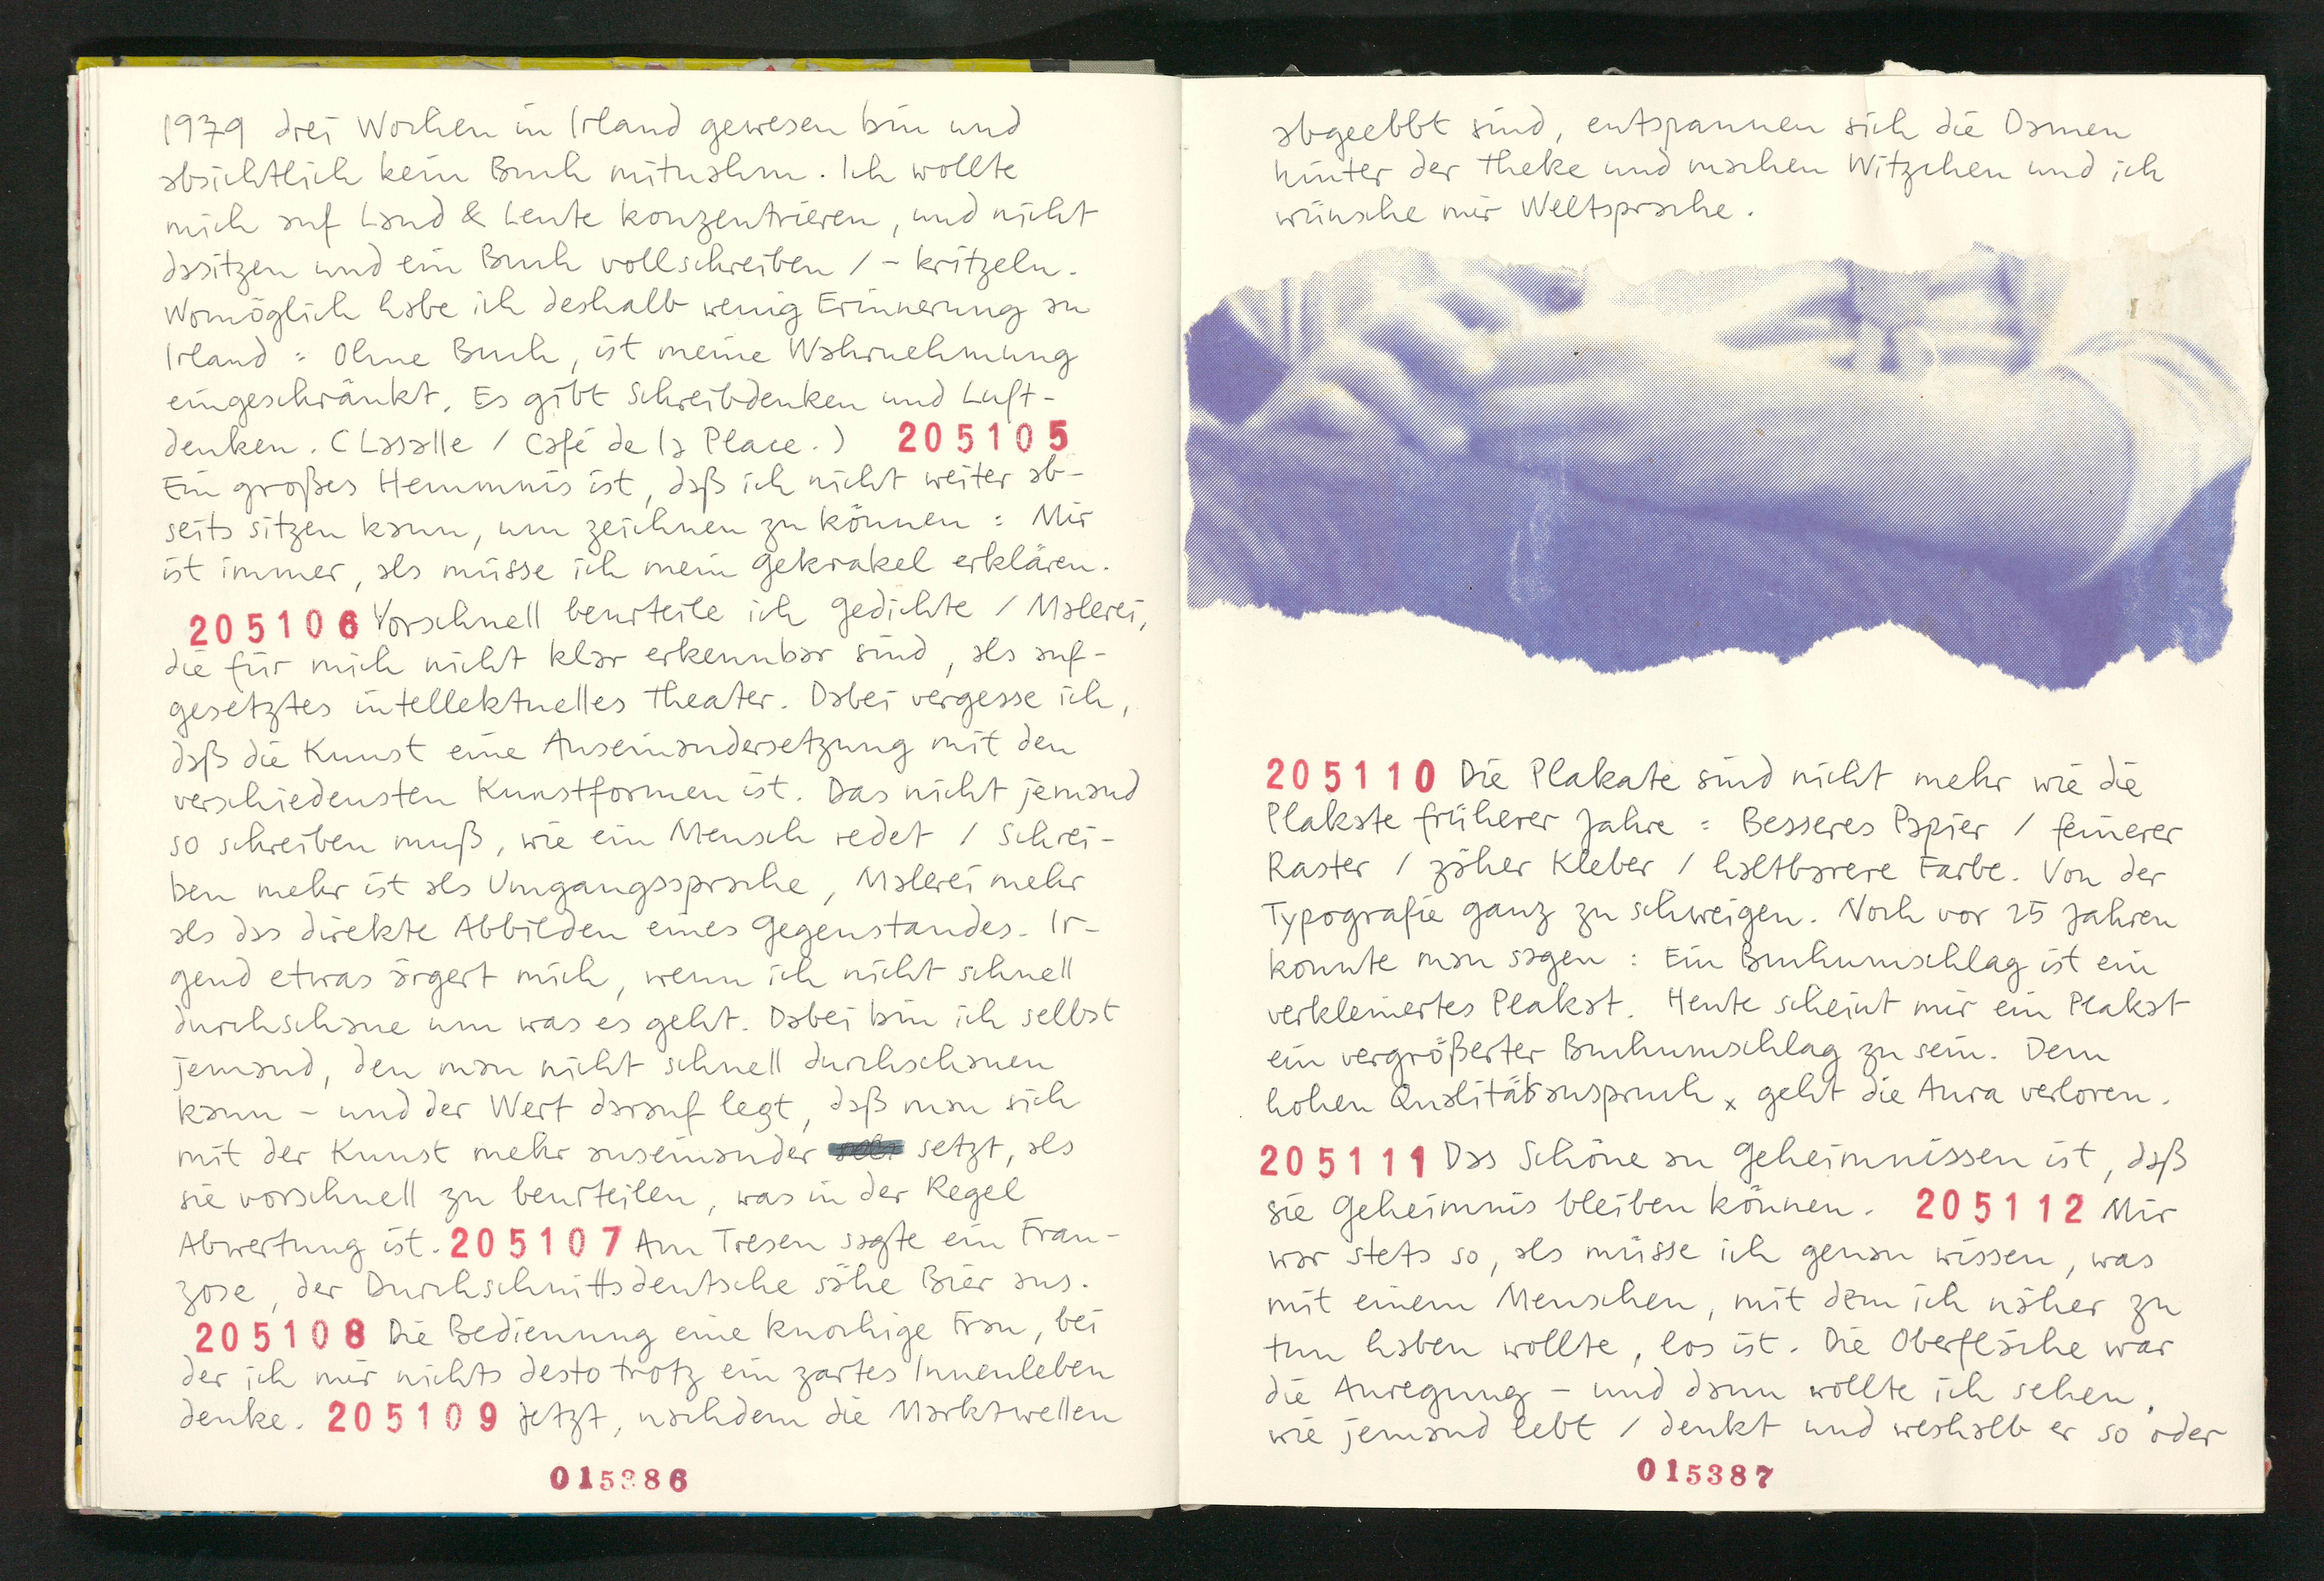 1979 drei Wochen in Irland gewesen bin und
absichtlich kein Buch mitnahm. Ich wollte
mich auf Land & Leute konzentrieren, und nicht
dasitzen und ein Buch vollschreiben / - kritzeln.
Womöglich habe ich deshalb wenig Erinnerung an
Irland = Ohne Buch, ist meine Wahrnehmung
eingeschränkt. Es gibt Schreibdenken und Luft-
denken. (Lasalle / Café de la Place.) 205105
Ein großes Hemmnis ist, daß ich nicht weiter ab-
seits sitzen kann, um zeichnen zu können = Mir
ist immer, als müsse ich mein Gekrakel erklären.
205106 Vorschnell beurteile ich Gedichte / Malerei,
die für mich nicht klar erkennbar sind, als auf-
gesetztes intellektuelles Theater. Dabei vergesse ich,
daß die Kunst eine Auseinandersetzung mit den
verschiedensten Kunstformen ist. Das nicht jemand
so schreiben muß, wie ein Mensch redet / Schrei-
ben mehr ist als Umgangssprache, Malerei mehr
als das direkte Abbilden eines Gegenstandes. Ir-
gend etwas ärgert mich, wenn ich nicht schnell
durchschaue um was es geht. Dabei bin ich selbst
jemand, den man nicht schnell durchschauen
kann - und der Wert darauf legt, daß man sich
mit der Kunst mehr auseinander setzt, als
sie vorschnell zu beurteilen, was in der Regel
Abwertung ist. 205107 Am Tresen sagte ein Fran-
zose, der Durchschnittsdeutsche sähe Bier aus.
205108 Die Bedienung eine knochige Frau, bei
der ich mir nichts desto trotz ein zartes Innenleben
denke. 205109 Jetzt, nachdem die Marktwellen
015386
abgeebbt sind, entspannen sich die Damen
hinter der Theke und machen Witzchen und ich
wünsche mir Weltsprache.
205110 Die Plakate sind nicht mehr wie die
Plakate früherer Jahre = Besseres Papier / feinerer
Raster / zäher Kleber / haltbarere Farbe. Von der
Typografie ganz zu schweigen. Noch vor 25 Jahren
konnte man sagen : Ein Buchumschlag ist ein
verkleinertes Plakat. Heute scheint mir ein Plakat
ein vergrößerter Buchumschlag zu sein. Dem
hohen Qualitätsanspruch x geht die Aura verloren.
205111 Das Schöne an Geheimnissen ist, daß
sie Geheimnis bleiben können. 205112 Mir
war stets so, als müsse ich genau wissen, was
mit einem Menschen, mit dem ich näher zu
tun haben wollte, los ist. Die Oberfläche war
die Anregung - und dann wollte ich sehen,
wie jemand lebt / denkt und weshalb er so oder
015387